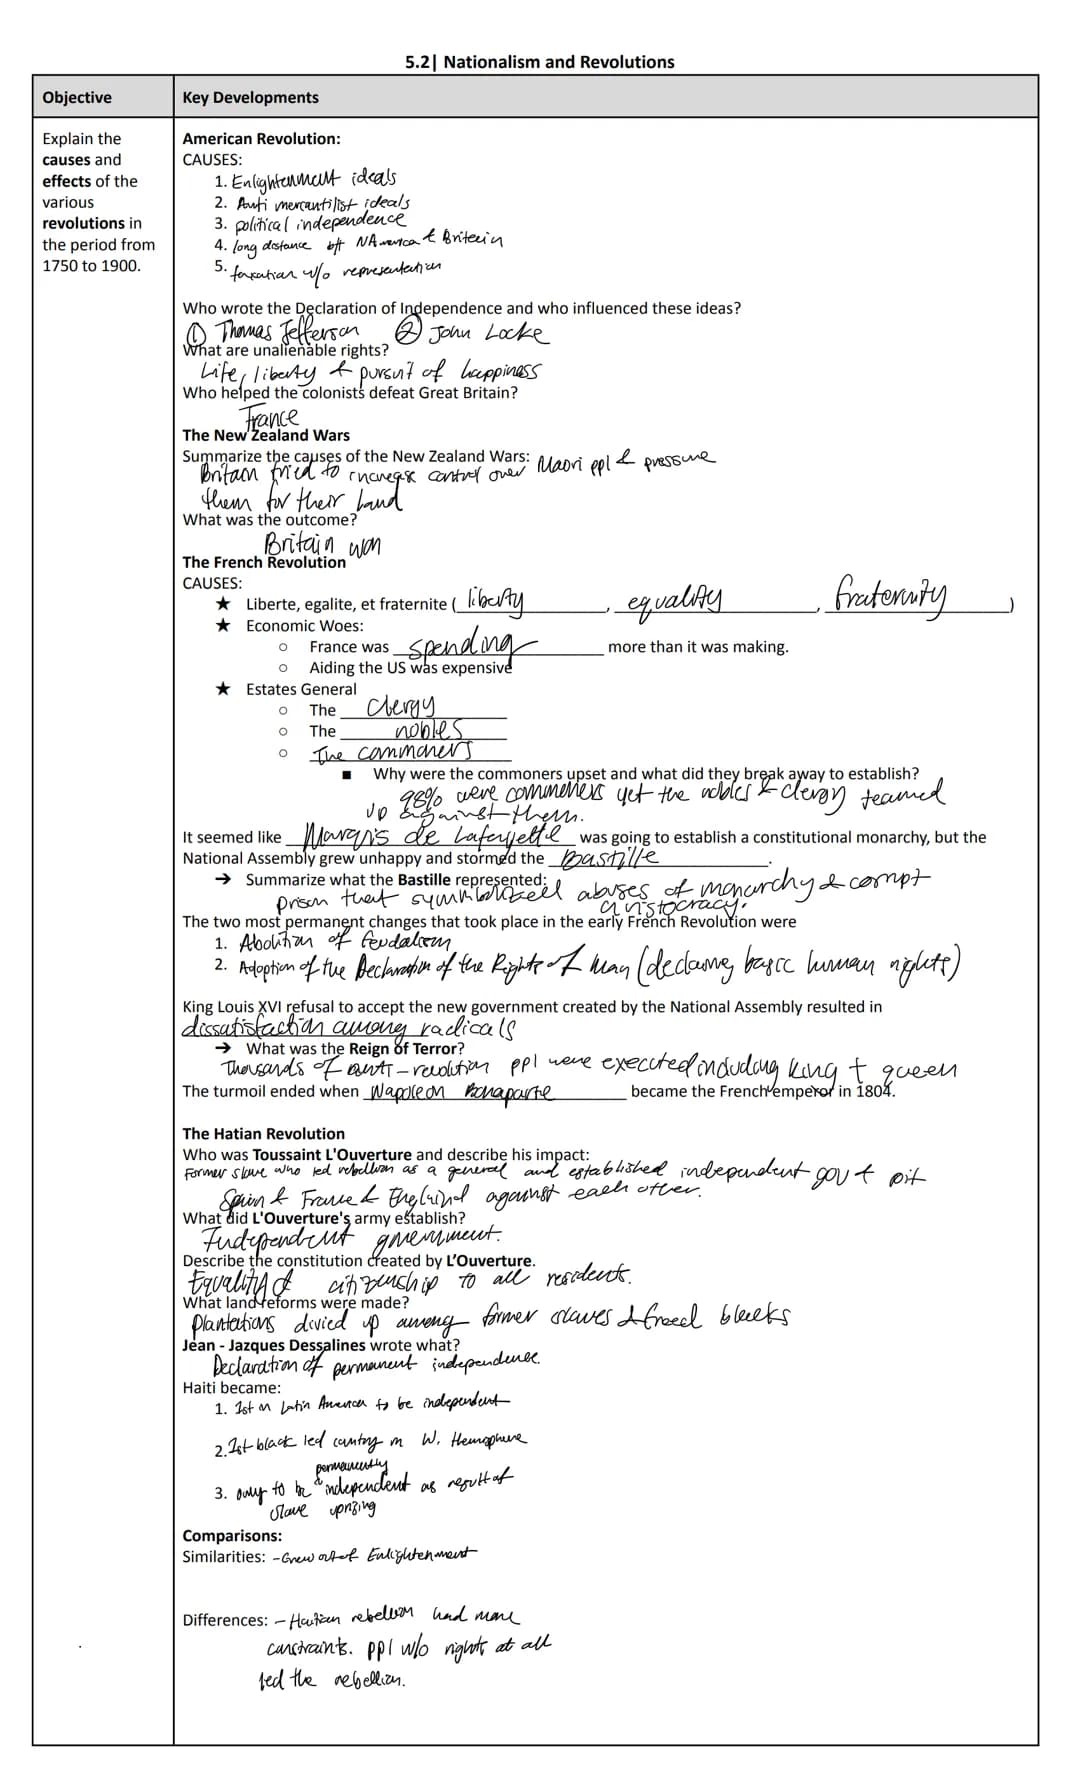 5.2| Nationalism and Revolutions
Objective
Key Developments
Explain the
causes and
effects of the
various
revolutions in
the period from
1750 to 1900.
American Revolution:
CAUSES:
1. Enlightenment ideals
2. Anti mercantilist ideals
3. political independence
4. long distance btt NAmerica & Britain
5. taxation w/o representation
Who wrote the Declaration of Independence and who influenced these ideas?
① Thomas Jefferson ② John Locke
What are unalienable rights?
Life, liberty & pursuit of happiness
Who helped the colonists defeat Great Britain?
France
The New Zealand Wars
Summarize the causes of the New Zealand Wars:
Britain tried to increase control over Maori ppl & pressure
them for their land
What was the outcome?
Britain won
The French Revolution
CAUSES:
★ Liberte, egalite, et fraternite ( liberty , equality , fraternity )
★ Economic Woes:
○ France was spending more than it was making.
○ Aiding the US was expensive
★ Estates General
○ The clergy
○ The nobles
○ The commoners
■ Why were the commoners upset and what did they break away to establish?
98% were commoners yet the nobles & clergy teamed
up against them.
It seemed like Marquis de Lafayette was going to establish a constitutional monarchy, but the
National Assembly grew unhappy and stormed the Bastille .
➔ Summarize what the Bastille represented:
prison that symbolized abuses of monarchy & corrupt
aristocracy.
The two most permanent changes that took place in the early French Revolution were
1. Abolition of feudalism
2. Adoption of the Declaration of the Rights of Man (declaring basic human rights)
King Louis XVI refusal to accept the new government created by the National Assembly resulted in
dissatisfaction among radicals
➔ What was the Reign of Terror?
Thousands of anti-revolution ppl were executed including king + queen
The turmoil ended when Napoleon Bonaparte became the French emperor in 1804.
The Hatian Revolution
Who was Toussaint L'Ouverture and describe his impact:
Former slave who led rebellion as a general and established independent gov + pit
Spain & France & England against each other.
What did L'Ouverture's army establish?
Independent government.
Describe the constitution created by L'Ouverture.
Equality & citizenship to all residents.
What land reforms were made?
Plantations divied up among former slaves & freed blacks
Jean - Jazques Dessalines wrote what?
Declaration of permanent independence.
Haiti became:
1. 1st in Latin America to be independent
2. 1st black led country in W. Hemisphere
permanently
3. only to be independent as result of
slave uprising
Comparisons:
Similarities: - Grew out of Enlightenment
Differences: - Haitian rebellion had more
constraints. ppl w/o rights at all
led the rebellion.